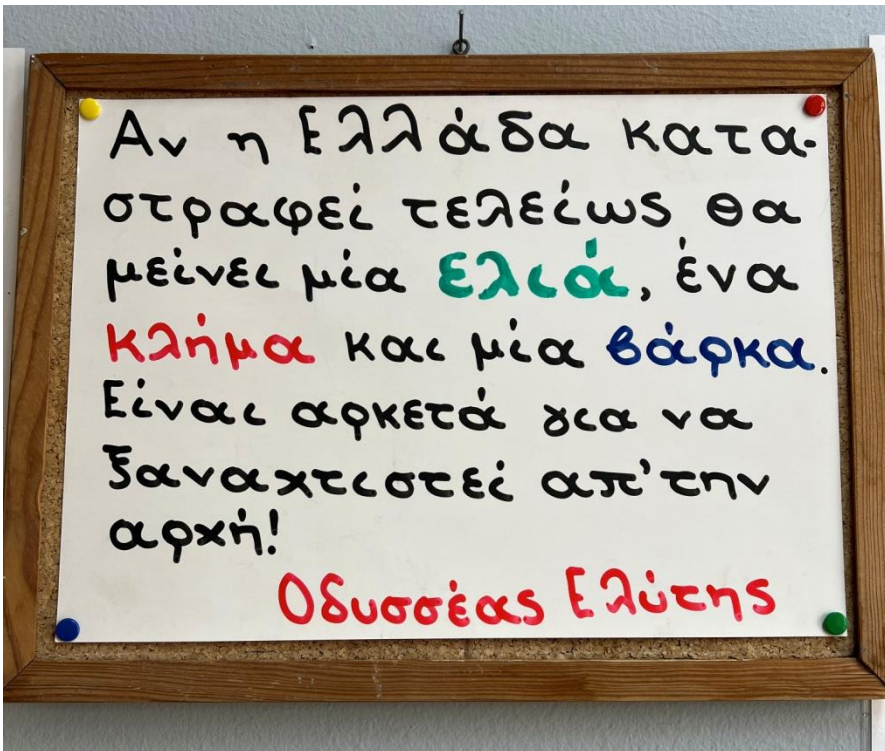 Αν η Ελλάδα κατα-
στραφεί τελείως θα
μείνει μία ελιά, ένα
κλήμα και μία βάρκα.
Είναι αρκετά για να
ξαναχτιστεί απ'την
αρχή!
Οδυσσέας Ελύτης